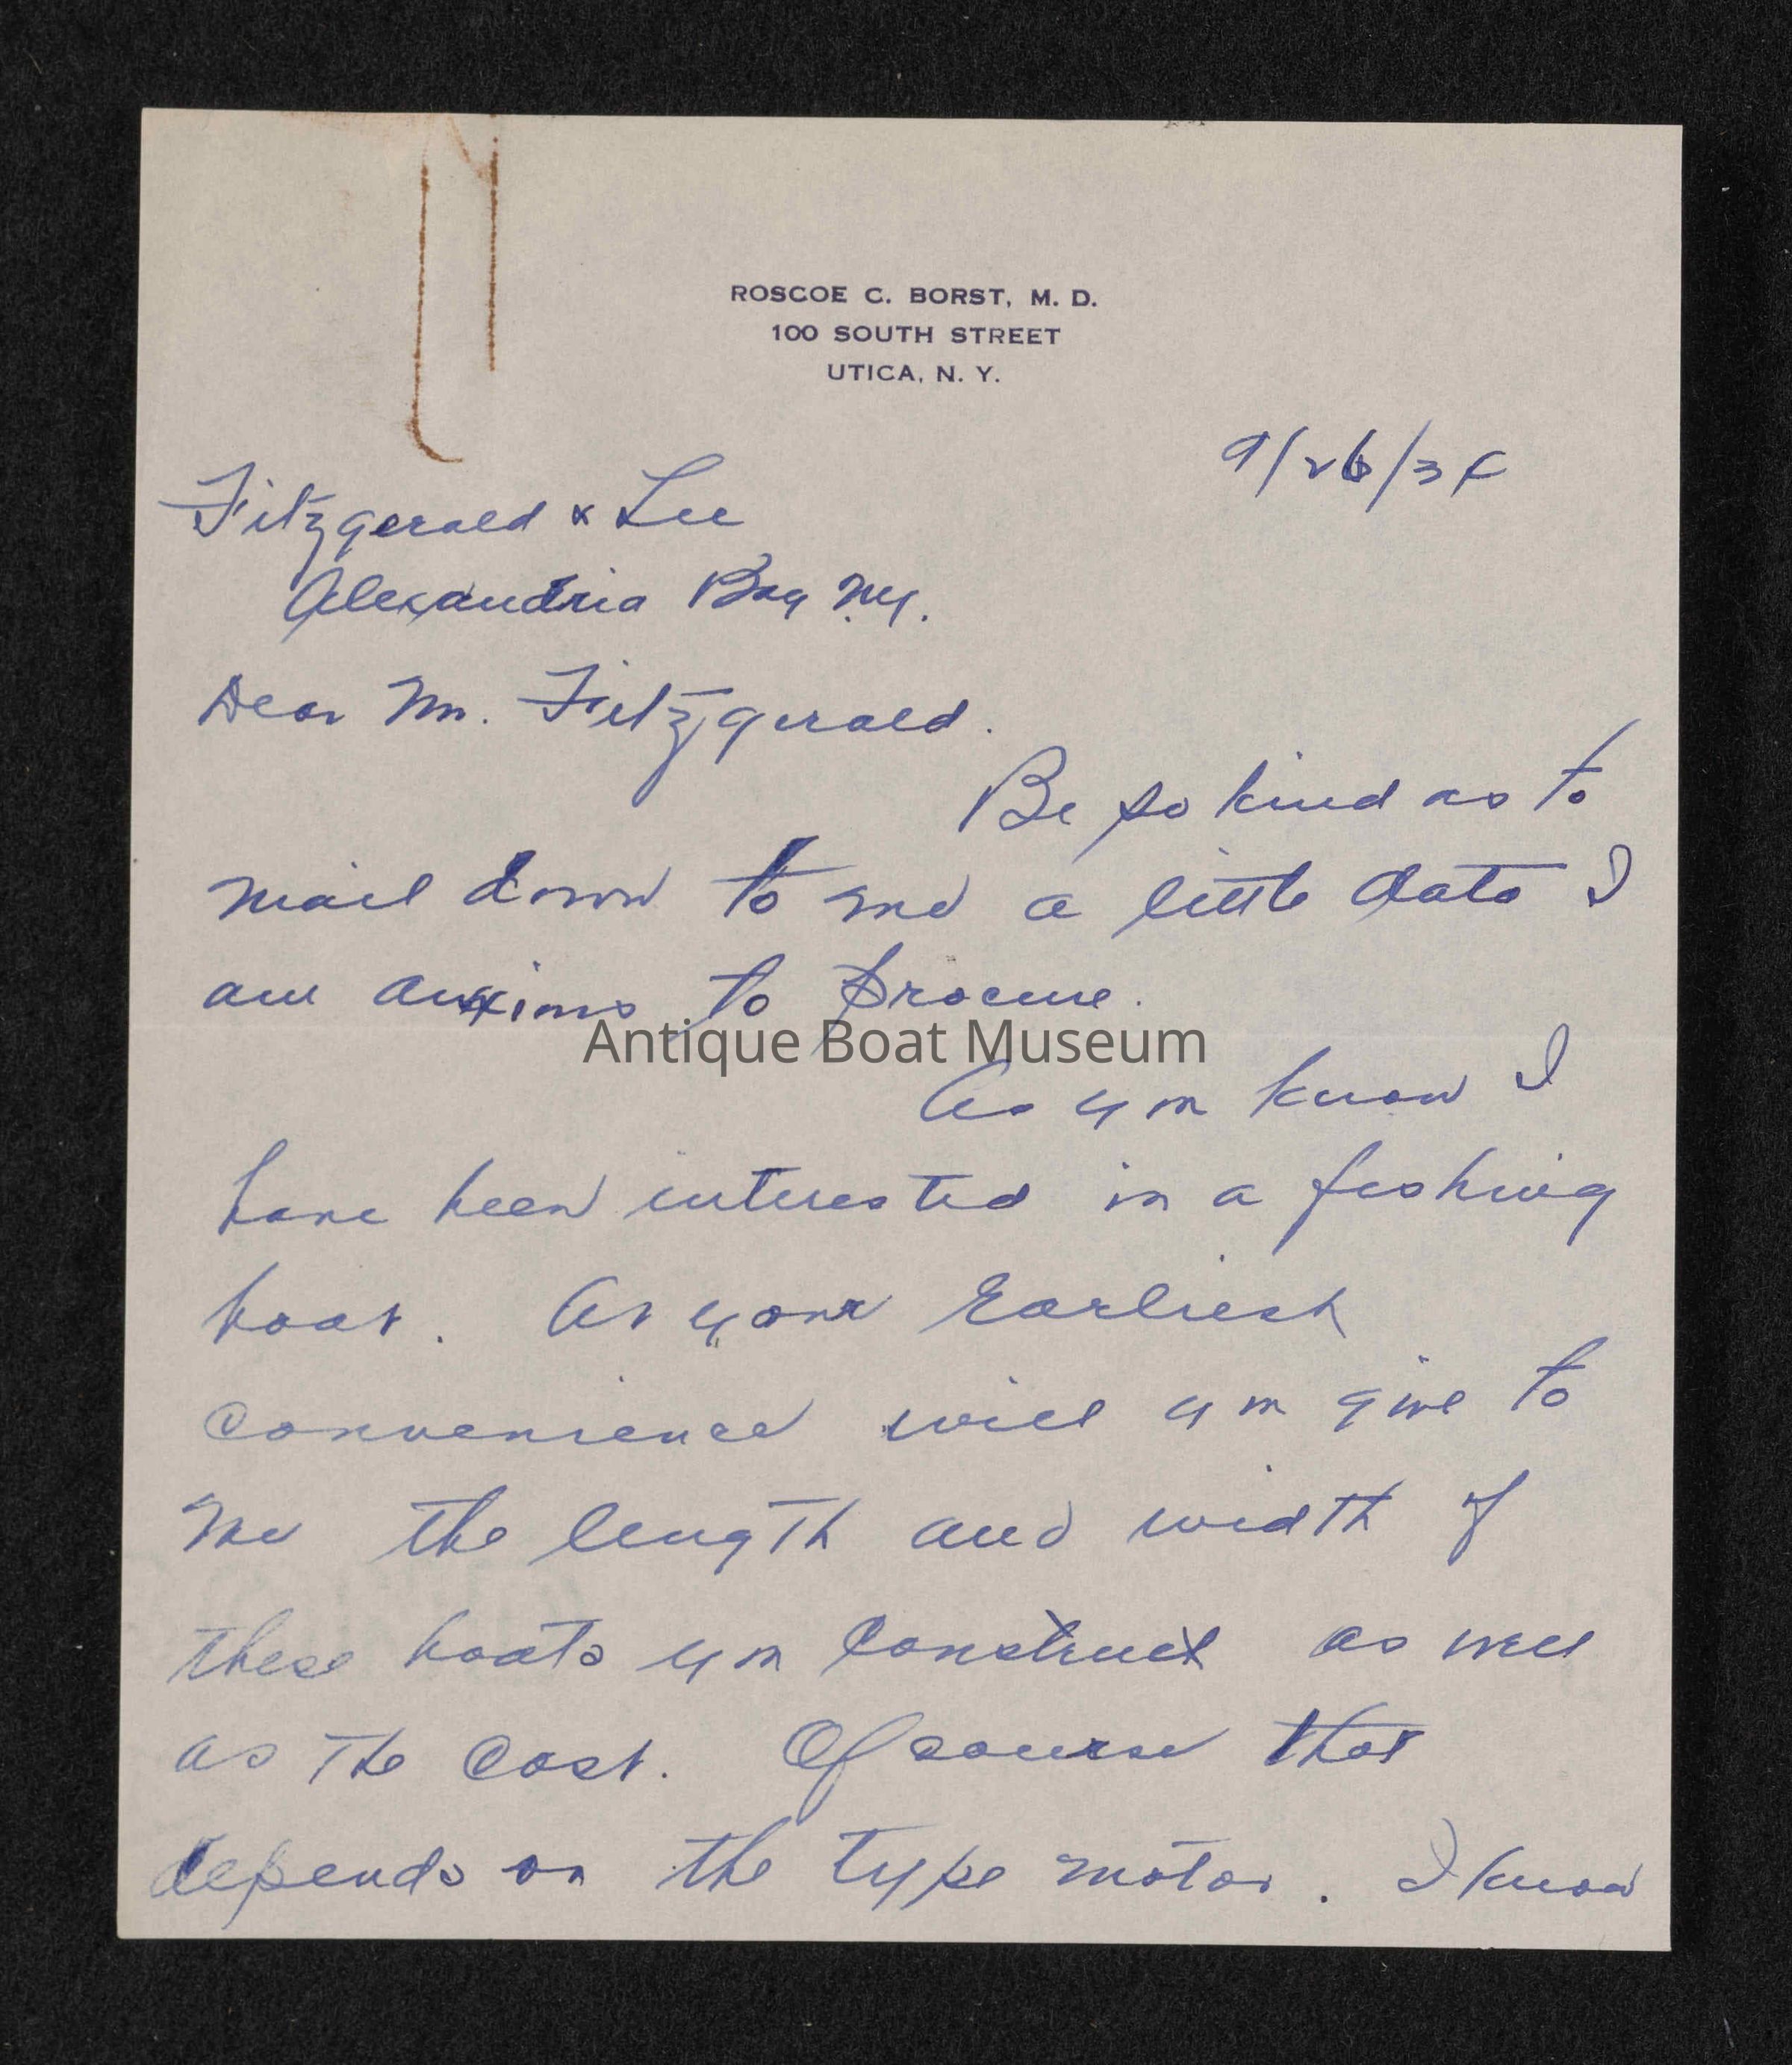 ROSCOE C. BORST, M. D.
100 SOUTH STREET
UTICA, N. Y.
9/26/34
Fitzgerald & Lee
Alexandria Bay N.Y.
Dear Mr. Fitzgerald.
Be so kind as to
mail down to me a little data I
am anxious to procure.
Antique Boat Museum
As you know I
have been interested in a fishing
boat. At your Earliest
Convenience will you give to
me the length and width of
these boats you Construct as well
as the Cost. Of course that
depends on the type motor. I know